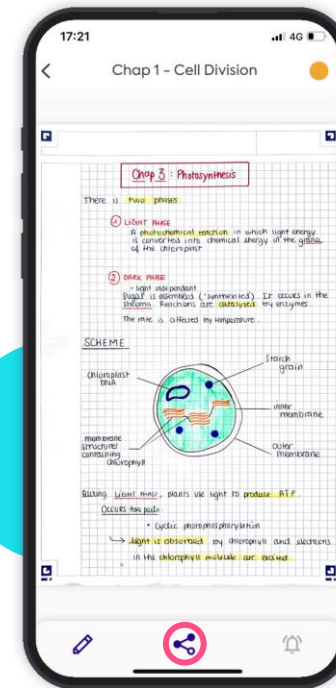 17:21
4G
Chap 1 - Cell Division
Chap 3 : Photosynthesis
There is two phases
1 LIGHT PHASE
A photochemical reaction in which light energy
is converted into chemical energy in the grana
of the chloroplast
2 DARK PHASE
- light independant
Sugar is assembled ("synthesised"). It occurs in the
stroma. Reactions are catalysed by enzymes
The rate is affected by temperature.
SCHEME
Starch
grain
chloroplast
DNA
inner
membrane
membrane
structures
containing
chlorophyll
outer
membrane
During Light phase, plants use light to produce ATP.
Occurs two paths
• Cyclic photophosphorylation
→ Light is absorbed by chlorophyll and electrons
in the chlorophyll molecule are excited